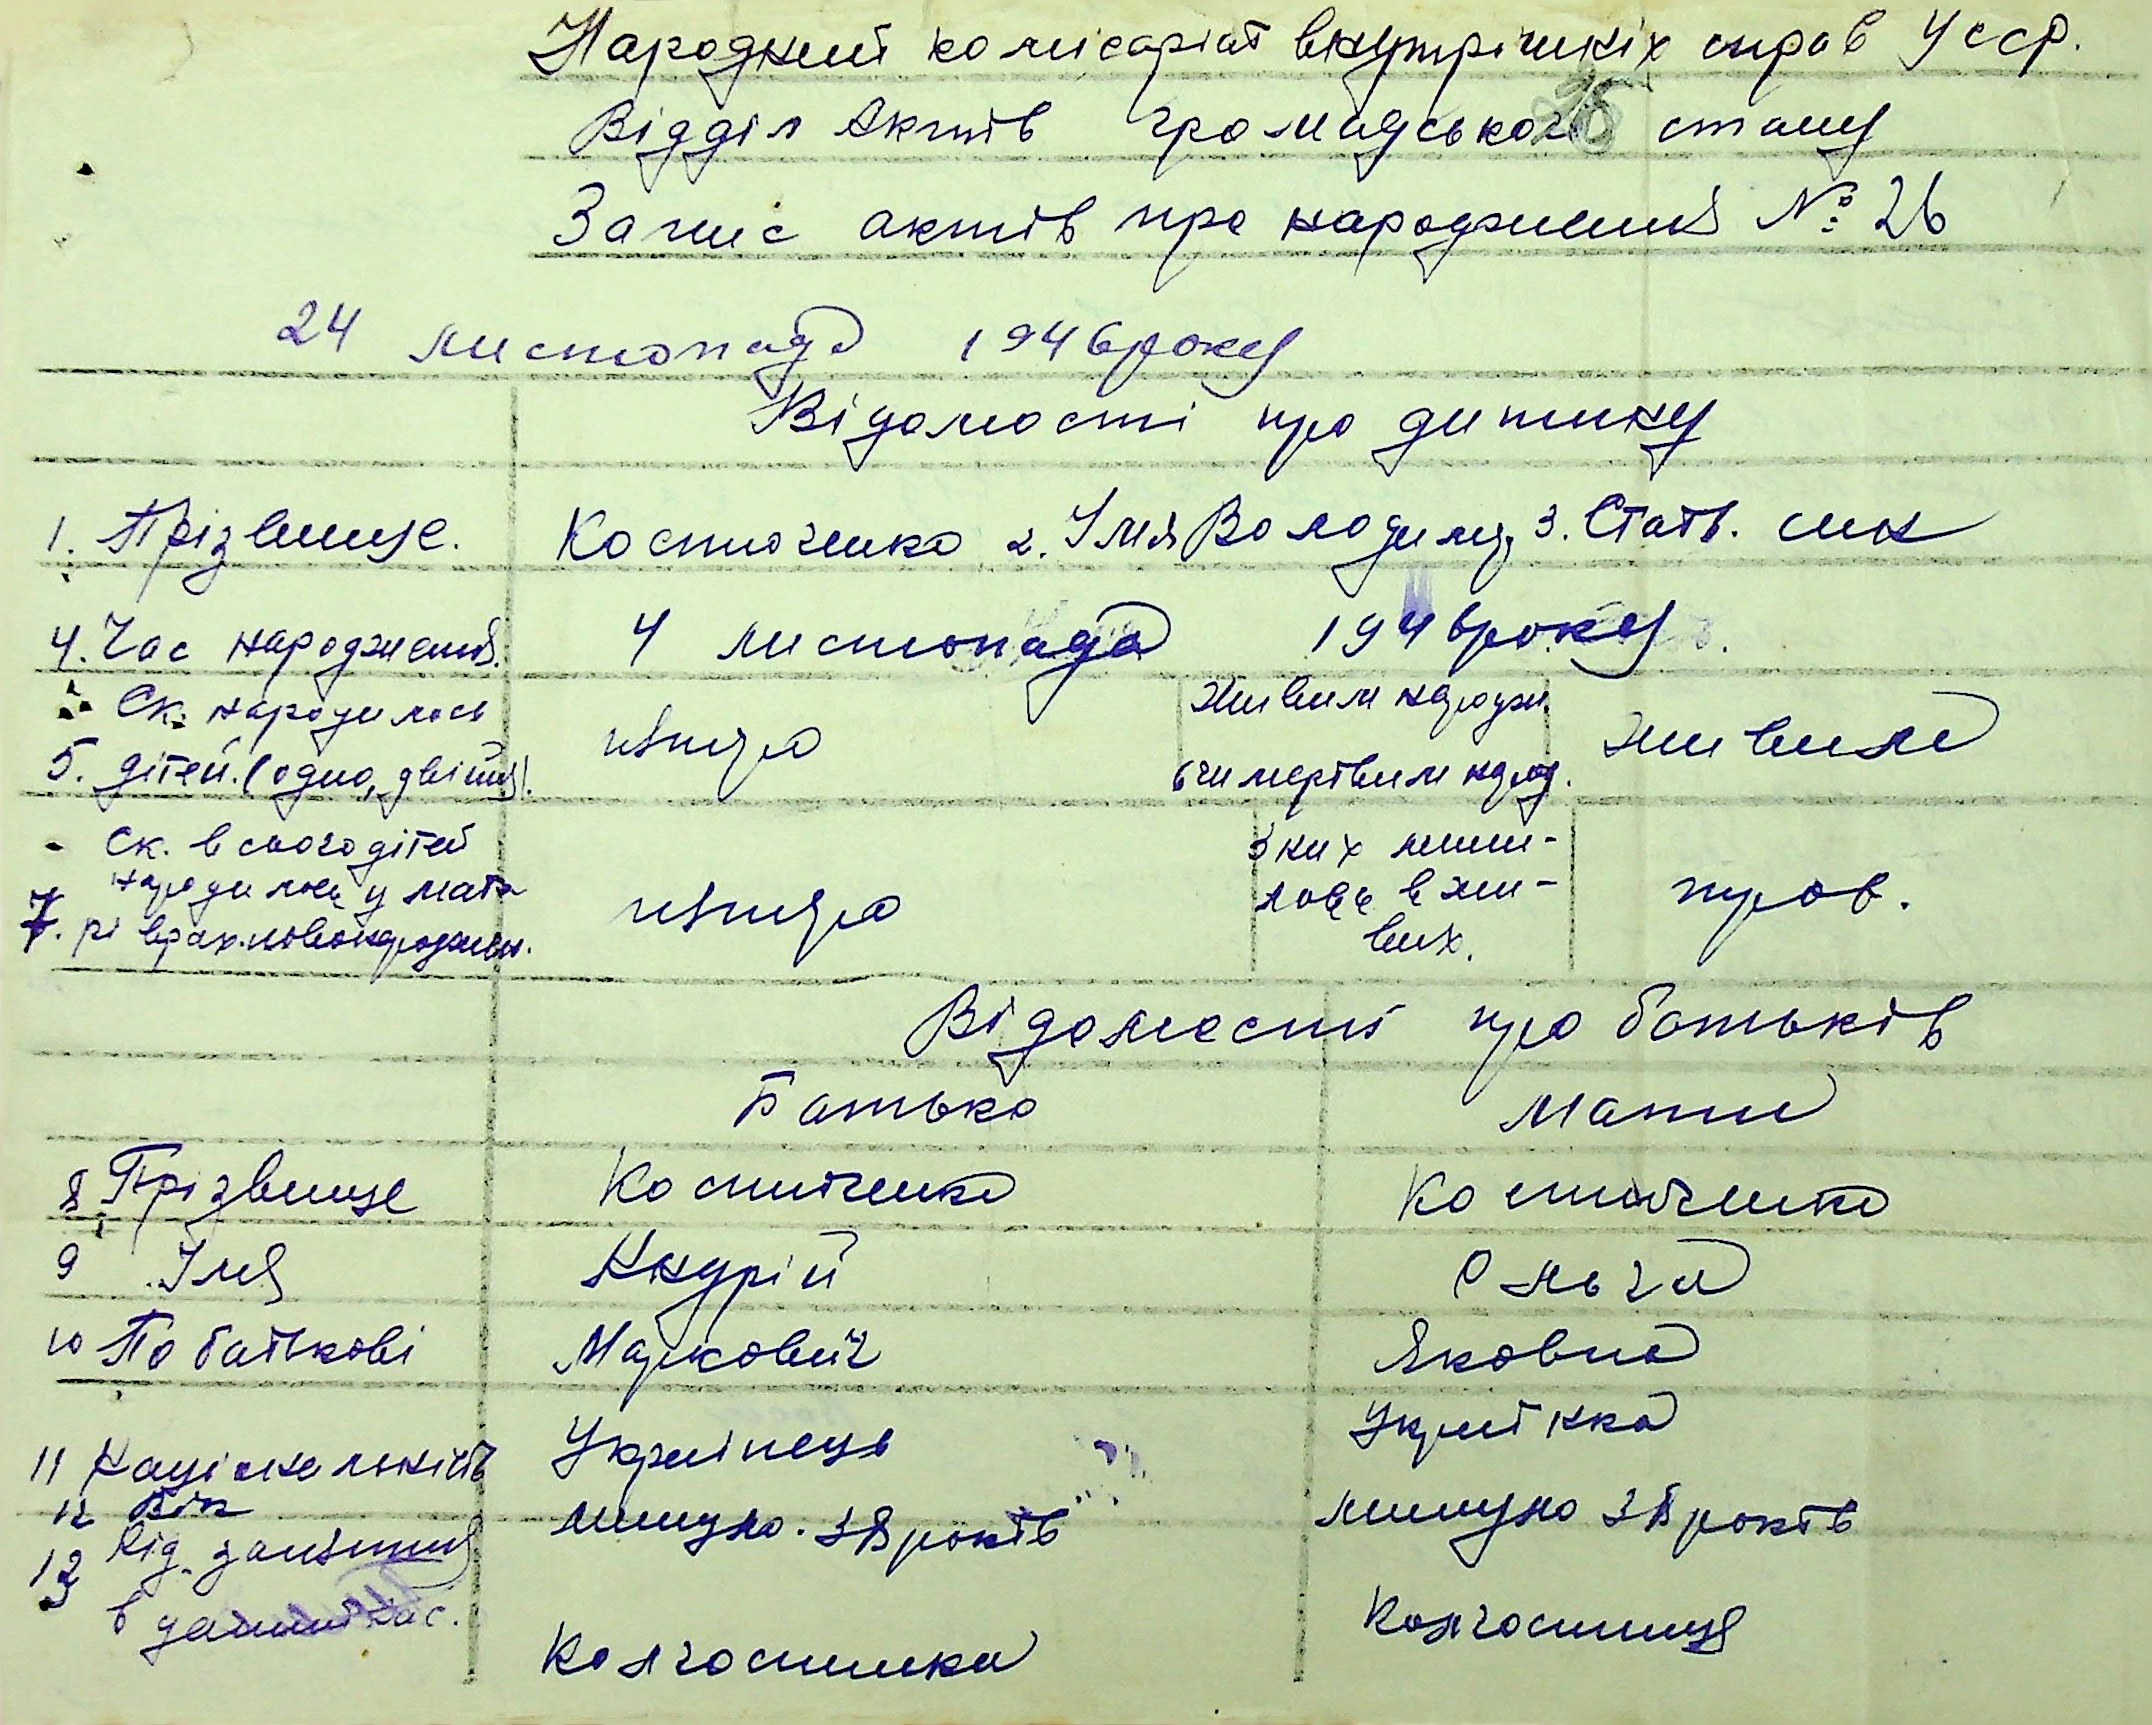 Народний комісаріат внутрішніх справ УССР.
Відділ Актів громадського стану
Запис актів про народження № 26
24 листопада 1946 року
Відомості про дитину
1. Прізвище. Костюченко 2. Імя Володимир 3. Стать. син
4. Час народження. 4 листопада 1946 року
Ск. народилось
5. дітей. (одно, двійня). пятеро
живим народж.
6 чи мертвим народ. живим
Ск. всього дітей
народилось у мате
7. рі врах. новонароджен. пятеро
З них лиши-
лось в жи-
вих. троє.
Відомості про батьків
Батько Мати
8 Прізвище Костюченко Костюченко
9 Імя Андрій Ольга
10 По батькові Маркович Яковна
11 Національність Українець Українка
12 Вік минуло 38 років минуло 38 років
13 Від. заняття
в даний час. Колгоспник Колгоспниця